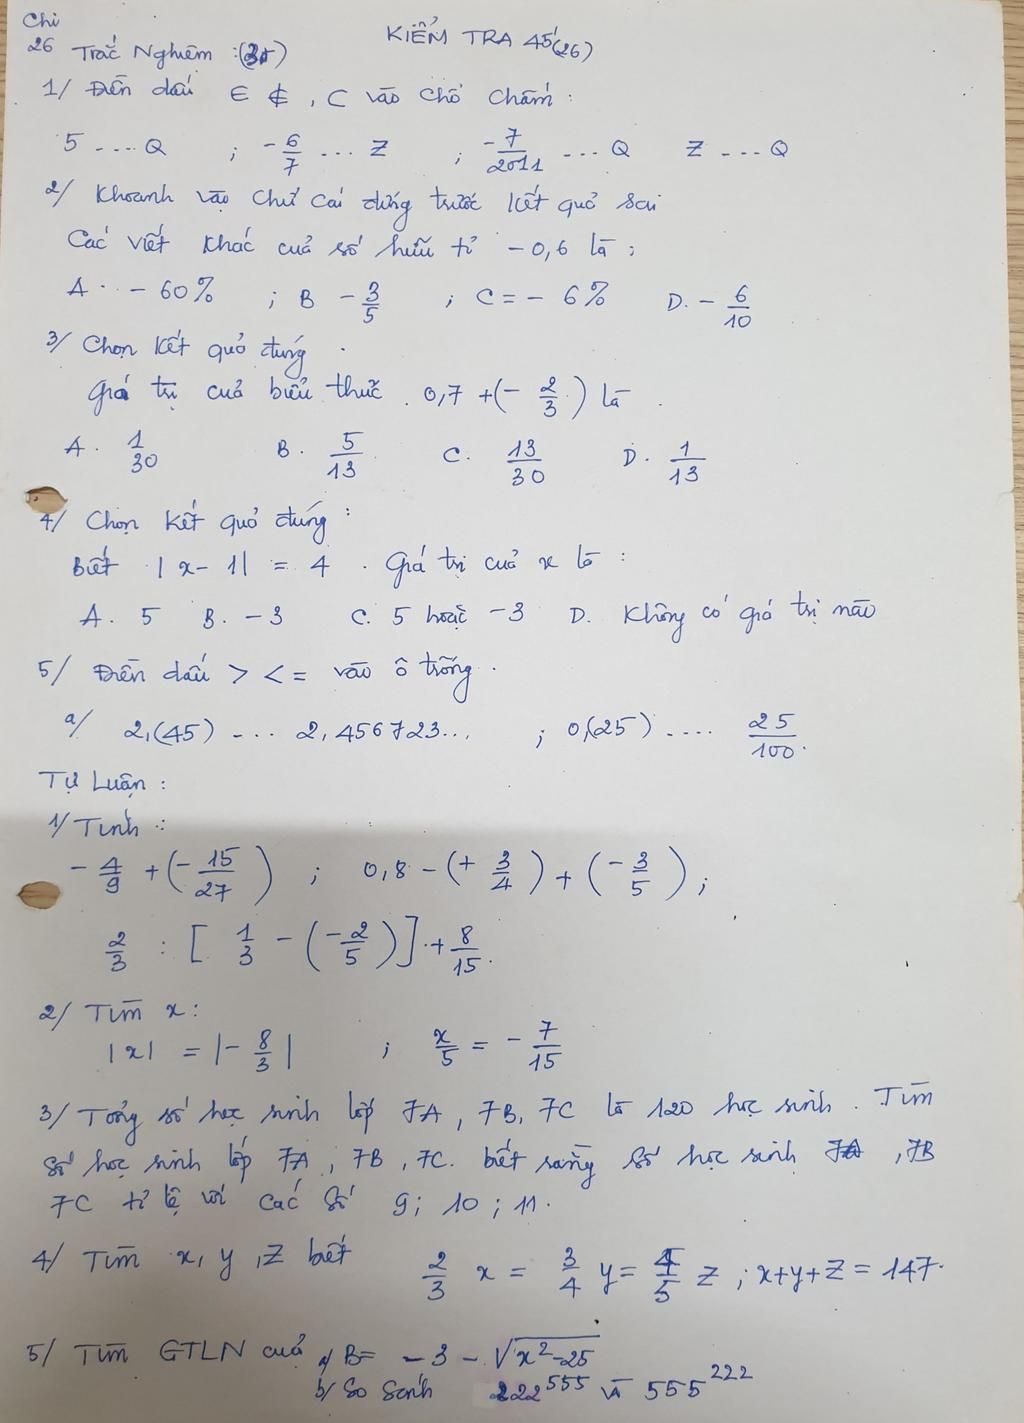 Chi
26 Trắc Nghiêm : (3đ) KIỂM TRA 45' (26)
1/ Điền dấu ∈ ∉ , ⊂ vào chổ chấm :
5 .... Q ; - 6/7 ... Z ; -7/2011 ... Q Z ... Q
2/ Khoanh vào chữ cái đứng trước kết quả sai
Các viết khác cuả số hữu tỉ - 0,6 là :
A. - 60% ; B - 3/5 ; C = - 6% D. - 6/10
3/ Chọn kết quả đúng .
Giá trị cuả biểu thức . 0,7 + (- 2/3) là .
A. 1/30 B. 5/13 C. 13/30 D. 1/13
4/ Chọn kết quả đúng :
Biết | x - 1| = 4 . Giá trị cuả x là :
A. 5 B. - 3 C. 5 hoặc -3 D. Không có giá trị nào
5/ Điền dấu > < = vào ô trống .
a/ 2,(45) .... 2,456723... ; 0,(25) .... 25/100.
Tự Luận :
1/ Tính :
- 4/9 + (- 15/27) ; 0,8 - (+ 3/4) + (- 3/5) ;
2/3 : [ 1/3 - (-2/5) ] + 8/15.
2/ Tìm x :
|x| = |- 8/3| ; x/5 = - 7/15
3/ Tổng số học sinh lớp 7A , 7B, 7C là 120 học sinh . Tìm
số học sinh lớp 7A , 7B , 7C. biết rằng số học sinh 7A , 7B
7C tỉ lệ với các số 9 ; 10 ; 11.
4/ Tìm x, y ,Z biết 2/3 x = 3/4 y = 4/5 Z ; x+y+Z = 147.
5/ Tìm GTLN cuả a/ B= - 3 - √(x²-25)
b/ So sánh 222⁵⁵⁵ và 555²²²